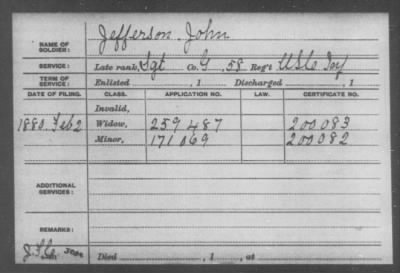 NAME OF SOLDIER: Jefferson, John
SERVICE: Late rank, Sgt Co. G, 58 Reg't U S C Inf
TERM OF SERVICE: Enlisted , 1 Discharged , 1
DATE OF FILING. CLASS. APPLICATION NO. LAW. CERTIFICATE NO.
Invalid,
1880. Feb 2 Widow, 259 487 200083
Minor, 171 069 200082
ADDITIONAL SERVICES:
REMARKS:
Died , 1 , at